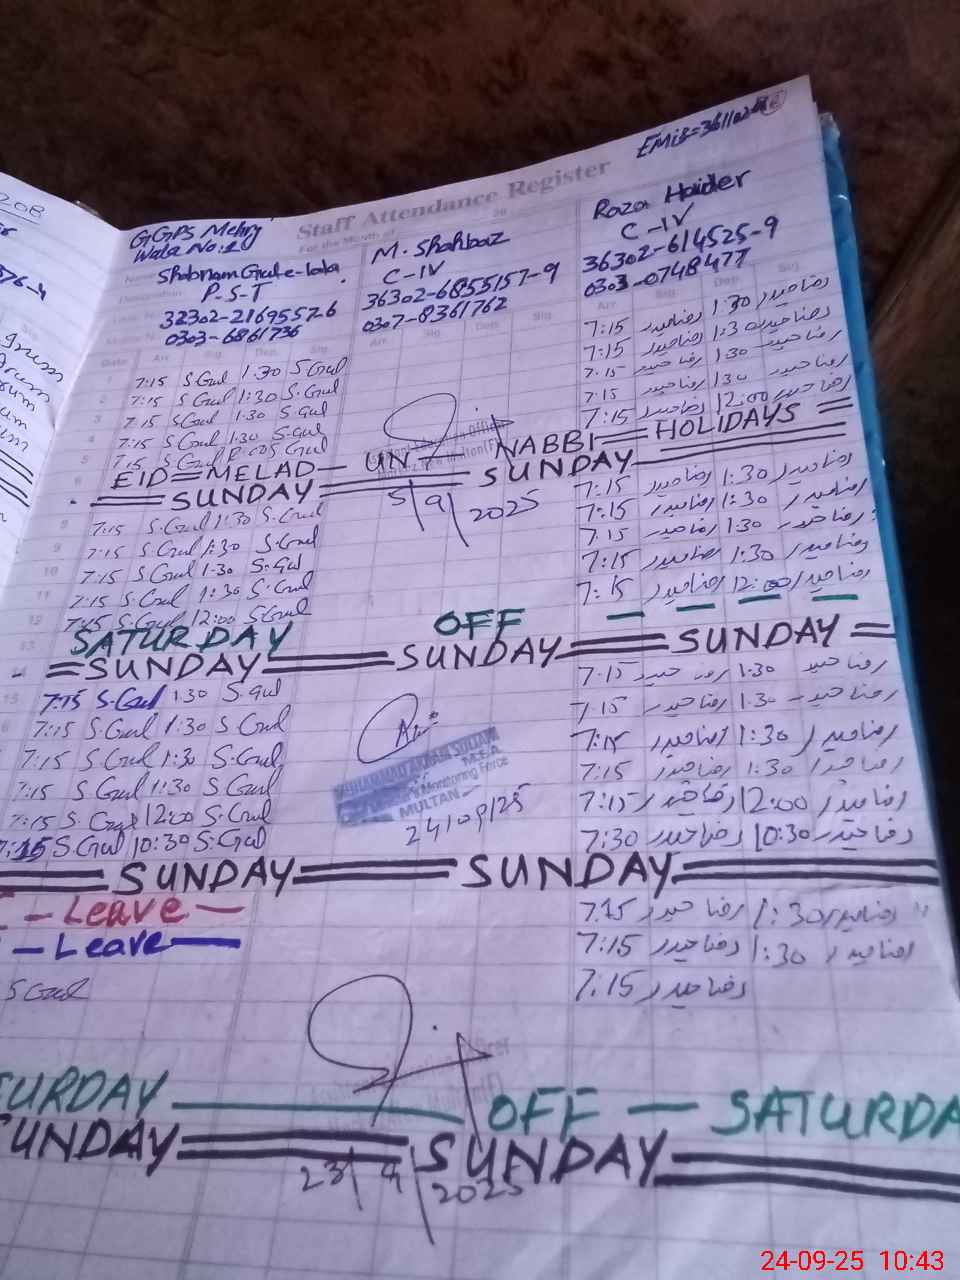 EMIS=361102
Staff Attendance Register
For the Month of 20
GGPS Mehry
Wala No:1
Shabnam Gul-e-lala
P-S-T
32302-2169552-6
0303-6861736
M. Shahbaz
C-IV
36302-6855157-9
0307-8361762
Raza Haider
C-IV
36302-614525-9
0303-0748477
Date Arr. Sig. Dep. Sig. Arr. Sig. Dep. Sig. Arr. Sig. Dep. Sig.
1 7:15 S.Gul 1:30 S.Gul 7:15 رضا حیدر 1:30 رضا حیدر
2 7:15 S.Gul 1:30 S.Gul 7:15 رضا حیدر 1:30 رضا حیدر
3 7:15 S.Gul 1:30 S.Gul 7:15 رضا حیدر 1:30 رضا حیدر
4 7:15 S.Gul 1:30 S.Gul 7:15 رضا حیدر 1:30 رضا حیدر
5 7:15 S.Gul 12:00 S.Gul 7:15 رضا حیدر 12:00 رضا حیدر
EID = MELAD — UN NABBI = HOLIDAYS
SUNDAY SUNDAY
5/9/2025
8 7:15 S.Gul 1:30 S.Gul 7:15 رضا حیدر 1:30 رضا حیدر
9 7:15 S.Gul 1:30 S.Gul 7:15 رضا حیدر 1:30 رضا حیدر
10 7:15 S.Gul 1:30 S.Gul 7:15 رضا حیدر 1:30 رضا حیدر
11 7:15 S.Gul 1:30 S.Gul 7:15 رضا حیدر 1:30 رضا حیدر
12 7:15 S.Gul 12:00 S.Gul 7:15 رضا حیدر 12:00 رضا حیدر
13 SATURDAY OFF
14 SUNDAY SUNDAY SUNDAY
15 7:15 S.Gul 1:30 S.Gul 7:15 رضا حیدر 1:30 رضا حیدر
7:15 S.Gul 1:30 S.Gul 7:15 رضا حیدر 1:30 رضا حیدر
7:15 S.Gul 1:30 S.Gul 7:15 رضا حیدر 1:30 رضا حیدر
7:15 S.Gul 1:30 S.Gul 7:15 رضا حیدر 1:30 رضا حیدر
7:15 S.Gul 12:00 S.Gul 7:15 رضا حیدر 12:00 رضا حیدر
7:15 S.Gul 10:30 S.Gul 7:30 رضا حیدر 10:30 رضا حیدر
MUHAMMAD AKRAM SULTANI
M.E.A
Monitoring Force
MULTAN
24/09/25
SUNDAY SUNDAY
— Leave — 7:15 رضا حیدر 1:30 رضا حیدر
— Leave — 7:15 رضا حیدر 1:30 رضا حیدر
S.Gul 7:15 رضا حیدر
TURDAY OFF — SATURDA
UNDAY SUNDAY
23/9/2025
24-09-25 10:43